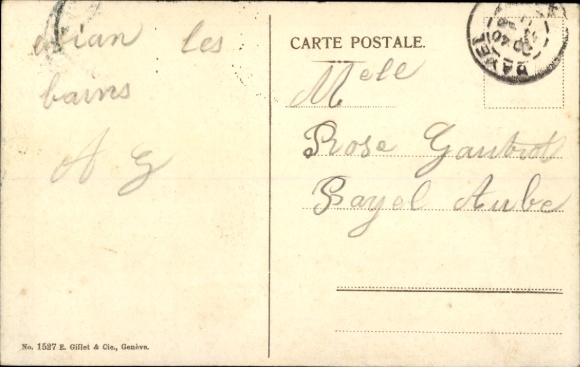 evian les
bains
A G
CARTE POSTALE.
Melle
Rose Gaubrot
Payel Aube
No. 1527 E. Gillet & Cie., Genève.